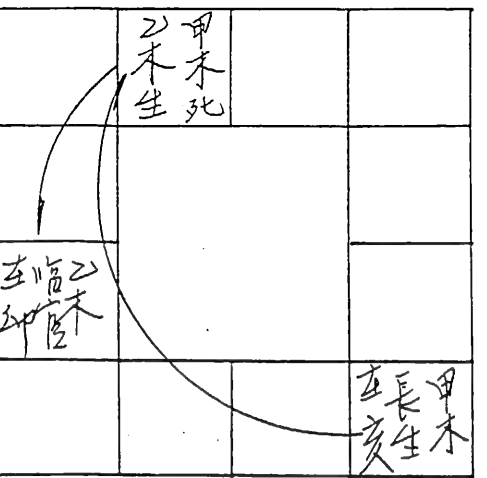 甲木死
乙木生
乙木
臨官
在卯
甲木
長生
在亥